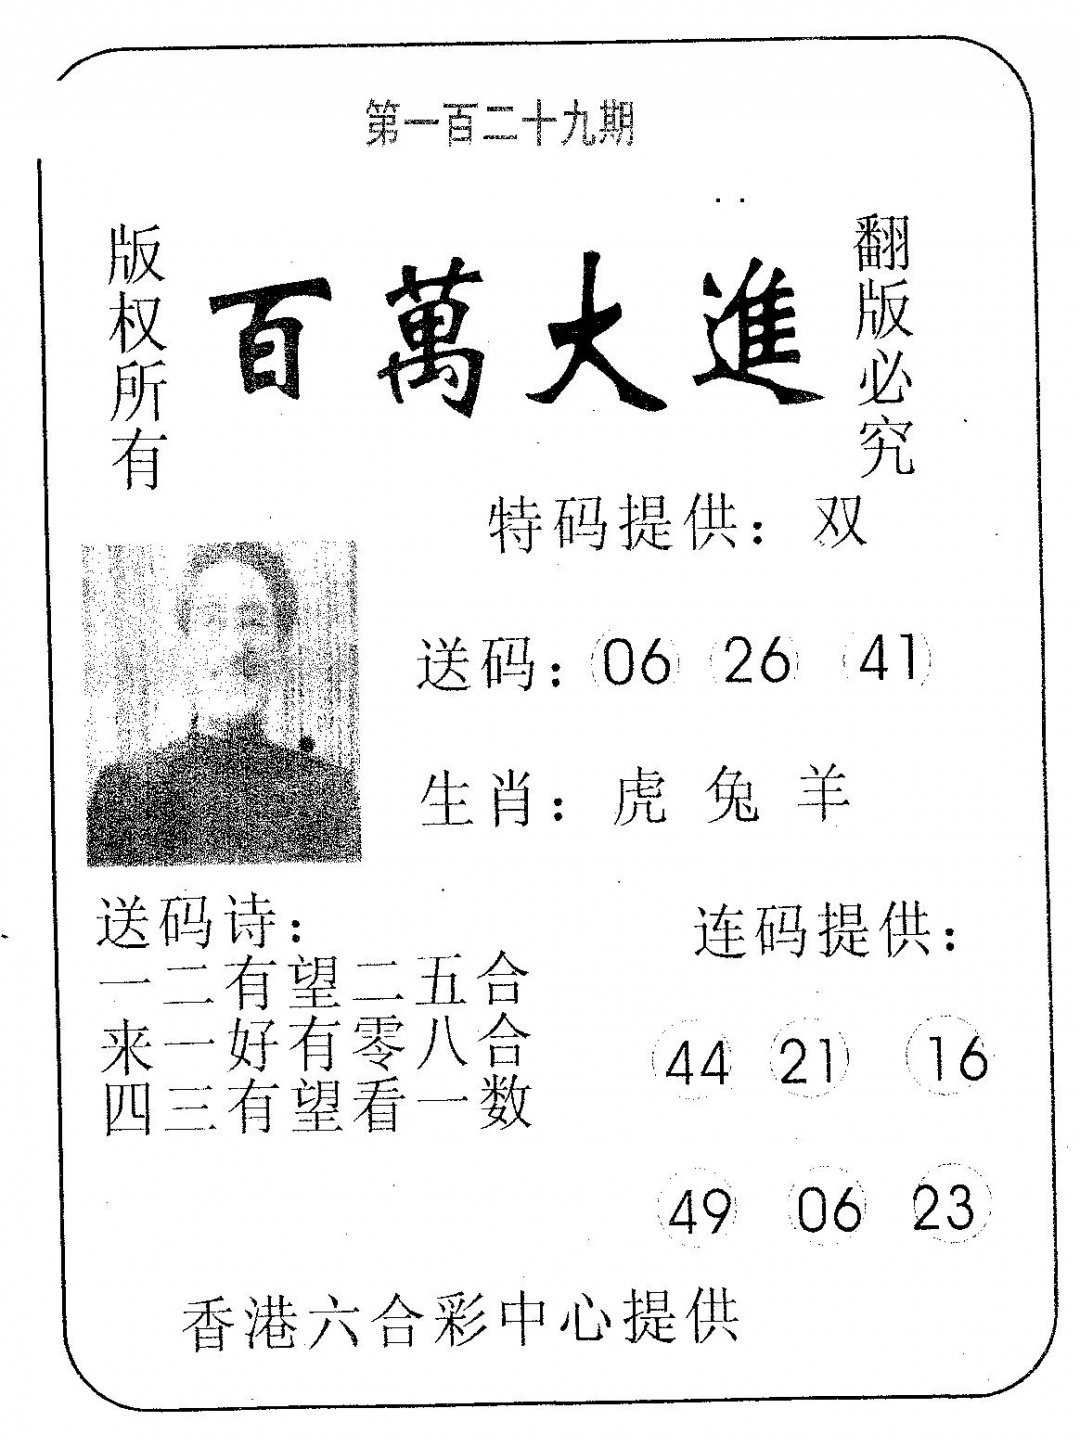 第一百二十九期
版权所有
百萬大進
翻版必究
特码提供：双
送码：06 26 41
生肖：虎 兔 羊
送码诗：
一二有望二五合
来一好有零八合
四三有望看一数
连码提供：
44 21 16
49 06 23
香港六合彩中心提供